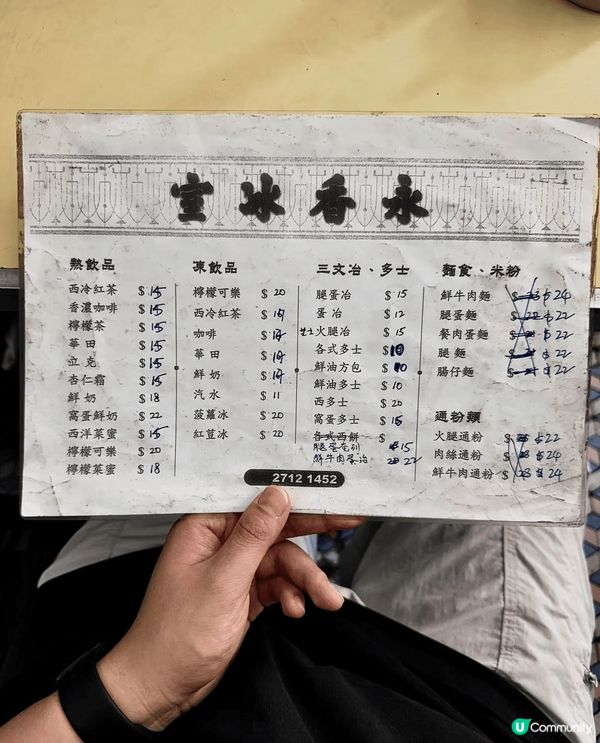 室冰香永
熱飲品
西冷紅茶 $ 15
香濃咖啡 $ 15
檸檬茶 $ 15
華田 $ 15
立克 $ 15
杏仁霜 $ 15
鮮奶 $ 18
窩蛋鮮奶 $ 22
西洋菜蜜 $ 15
檸檬可樂 $ 20
檸檬菜蜜 $ 18
凍飲品
檸檬可樂 $ 20
西冷紅茶 $
咖啡 $
華田 $
鮮奶 $
汽水 $ 11
菠蘿冰 $ 20
紅荳冰 $ 20
三文冶、多士
腿蛋冶 $ 15
蛋冶 $ 12
火腿冶 $ 15
各式多士 $ 10
鮮油方包 $ 10
鮮油多士 $ 10
西多士 $ 20
窩蛋多士 $ 15
各式西餅 $
腿蛋 15
鮮牛肉蛋治 22
麵食、米粉
鮮牛肉麵 $ 24
腿蛋麵 $ 22
餐肉蛋麵 $ 22
腿麵 $ 22
腸仔麵 $ 22
通粉類
火腿通粉 $ 22
肉絲通粉 $ 24
鮮牛肉通粉 $ 24
2712 1452
U Community